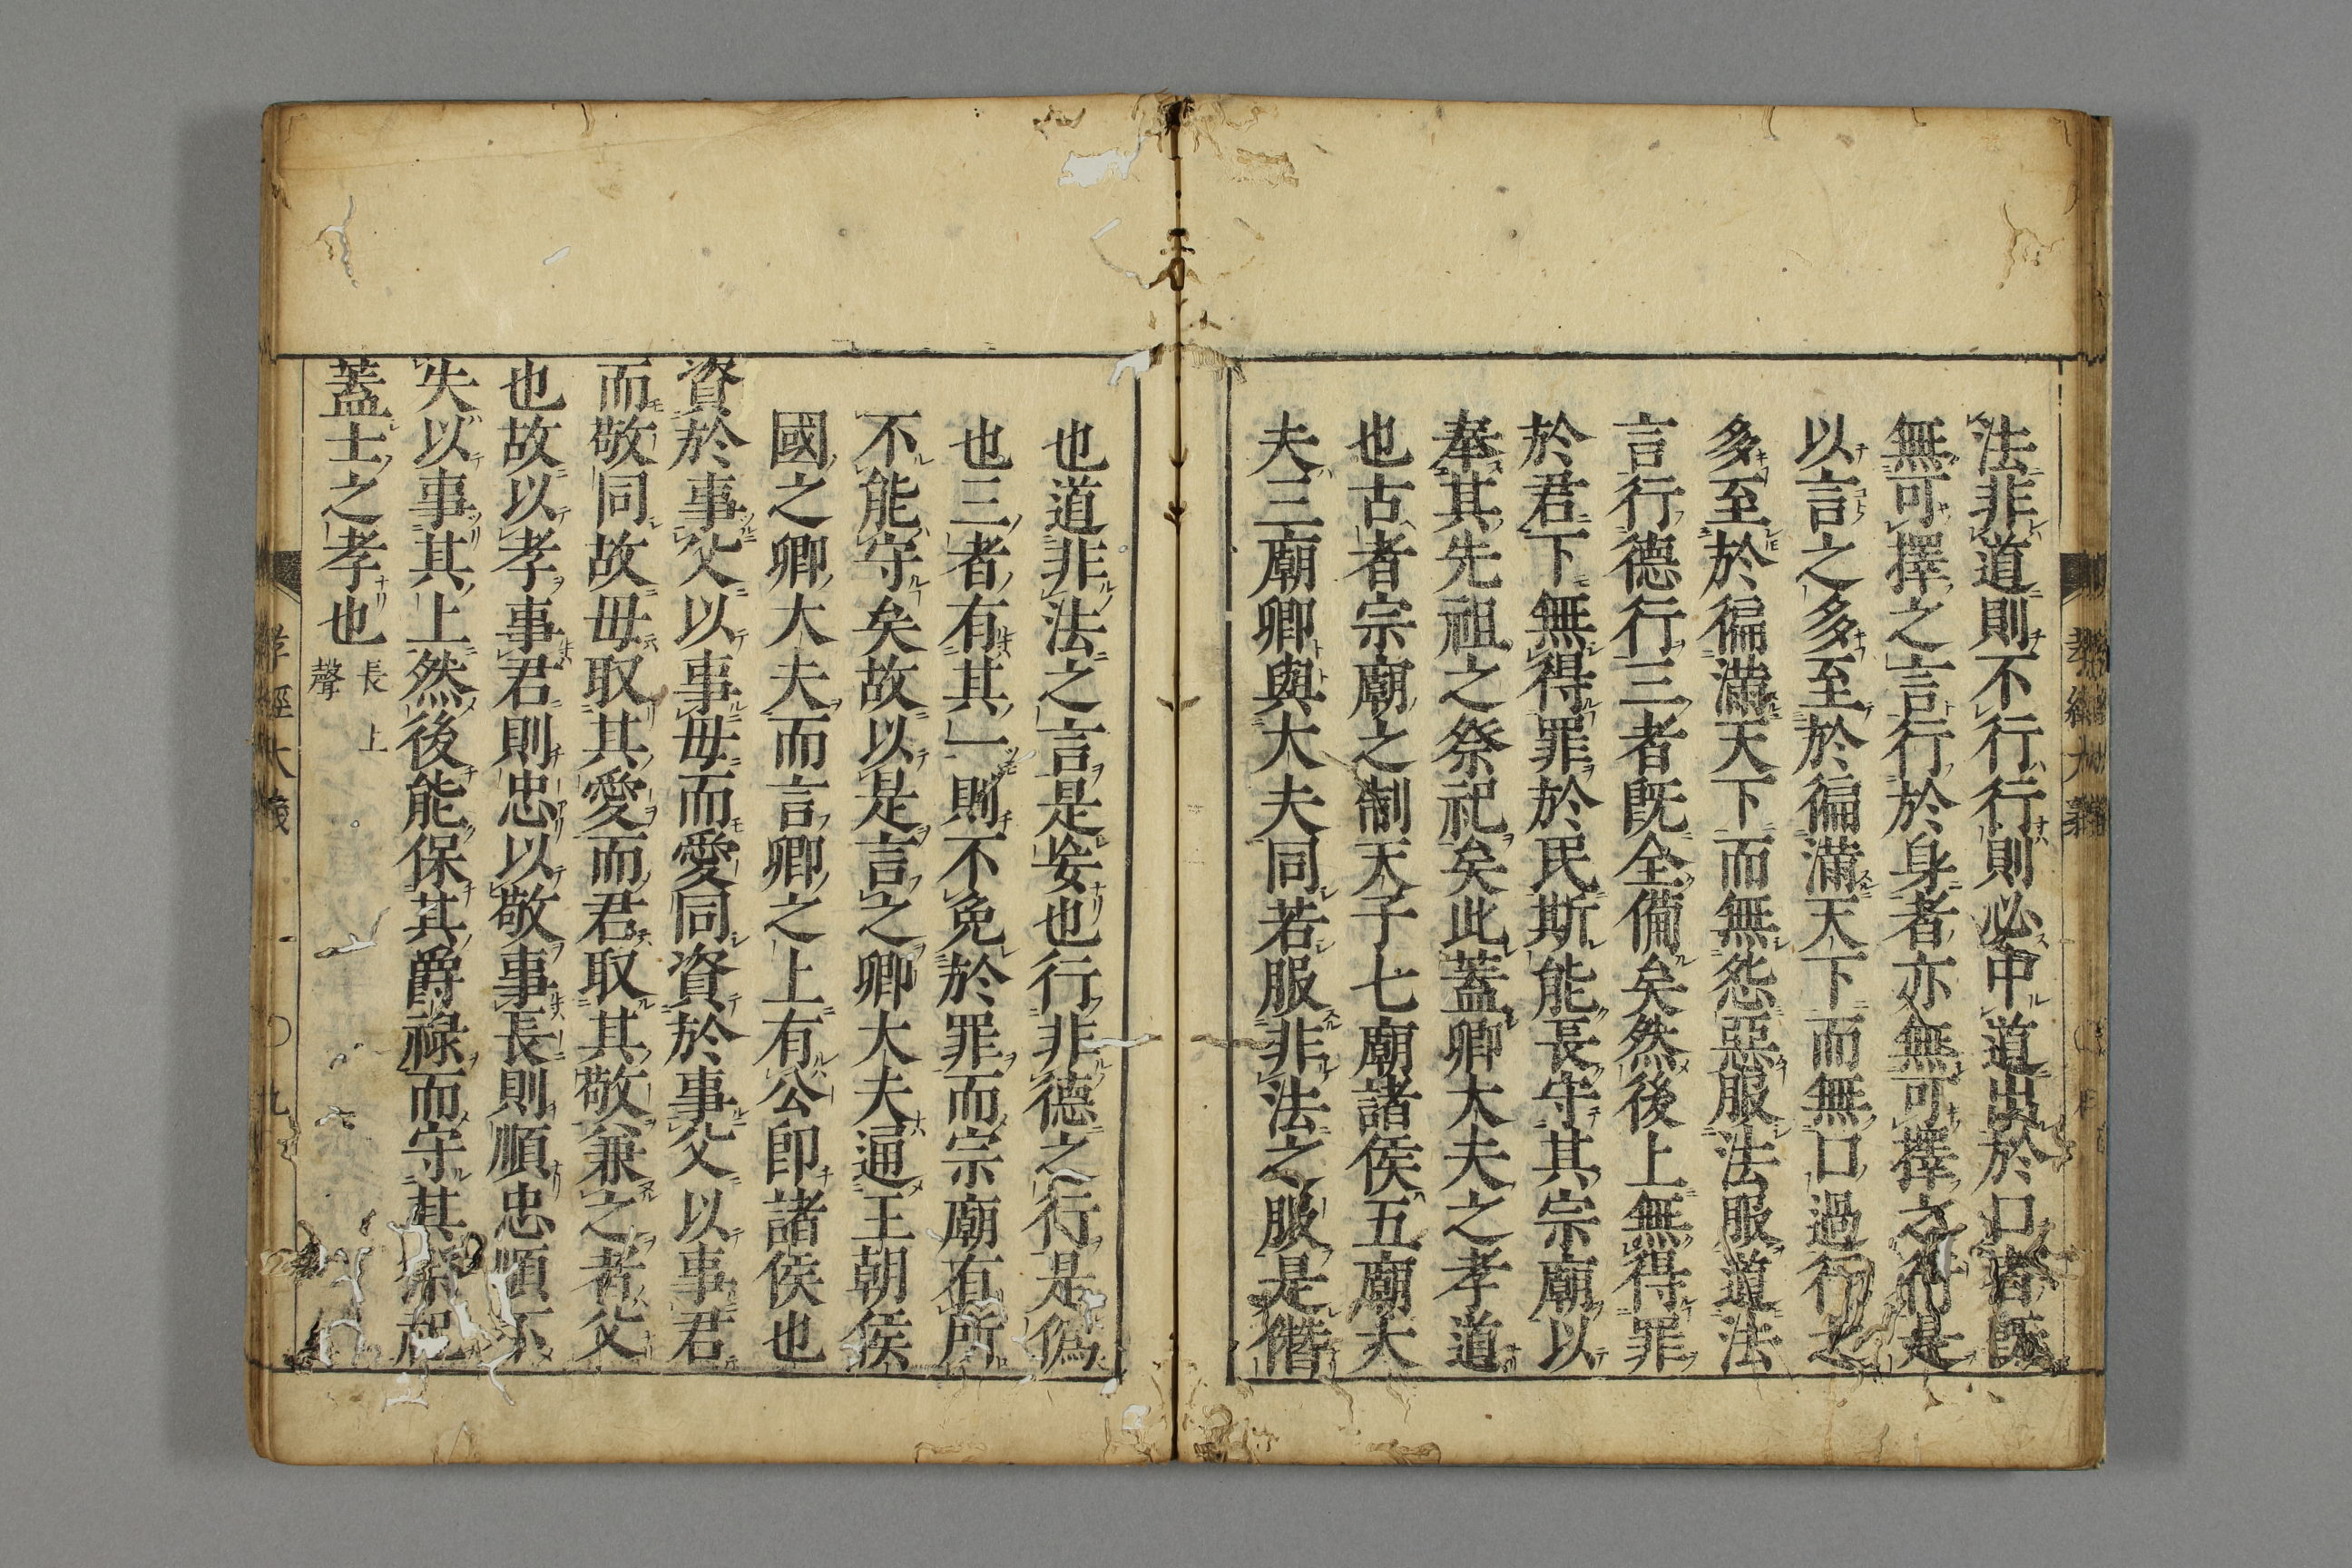 法非道則不行行則必中道出於口者既
無可擇之言行於身者亦無可擇之行是
以言之多至於徧滿天下而無口過行之
多至於徧滿天下而無怨惡服法服道法
言行德行三者既全備矣然後上無得罪
於君下無得罪於民斯能長守其宗廟以
奉其先祖之祭祀矣此蓋卿大夫之孝道
也古者宗廟之制天子七廟諸侯五廟大
夫三廟卿與大夫同若服非法之服是僭
也道非法之言是妄也行非德之行是偽
也三者有其一則不免於罪而宗廟有所
不能守矣故以是言之卿大夫逼王朝侯
國之卿大夫而言卿之上有公卽諸侯也
資於事父以事母而愛同資於事父以事君
而敬同故母取其愛而君取其敬兼之者父
也故以孝事君則忠以敬事長則順忠順不
失以事其上然後能保其爵祿而守其祭祀
蓋士之孝也 長上聲
孝經大義 九